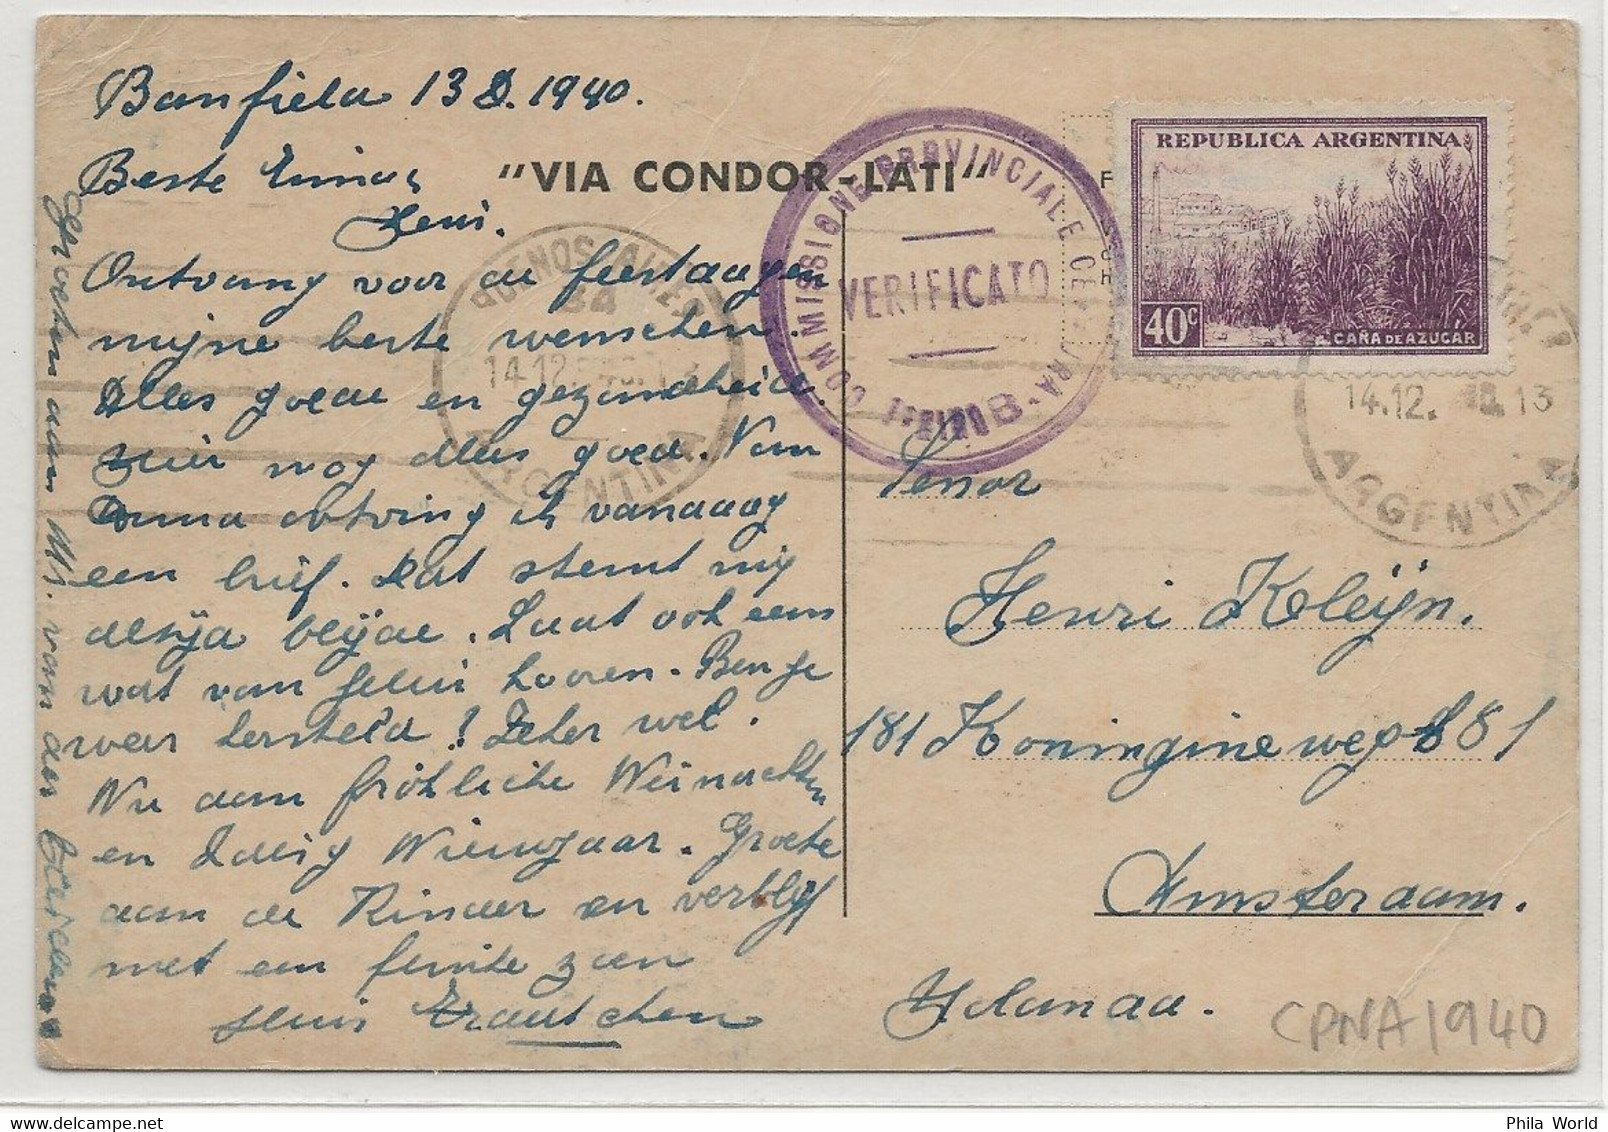 Banfield 13 D. 1940.
Beste
"VIA CONDOR-LATI"
Ontvang voor de feestdagen
mijne beste wenschen.
Alles goede en gezondheid.
Hier nog alles goed. Van
Oma ontving ik vandaag
een brief. Dat stemt mij
blijde. Laat ook eens
wat van hooren. Ben je
weer hersteld! Zeker wel.
Nu dan fröhliche Weinachten
en Zalig Nieuwjaar. Groete
aan de Kinder en verblijf
met een zoen
Trautchen
Groeten aan Mr. van den
REPUBLICA ARGENTINA
40c
CAÑA DE AZUCAR
COMMISSIONE PROVINCIALE CENSURA
VERIFICATO
BUENOS AIRES
14.12.
ARGENTINA
14.12. 13
ARGENTINA
Senor
Henri Kleijn.
181 Koninginneweg 181
Amsterdam.
Holanda.
CPNA 1940
Phila World